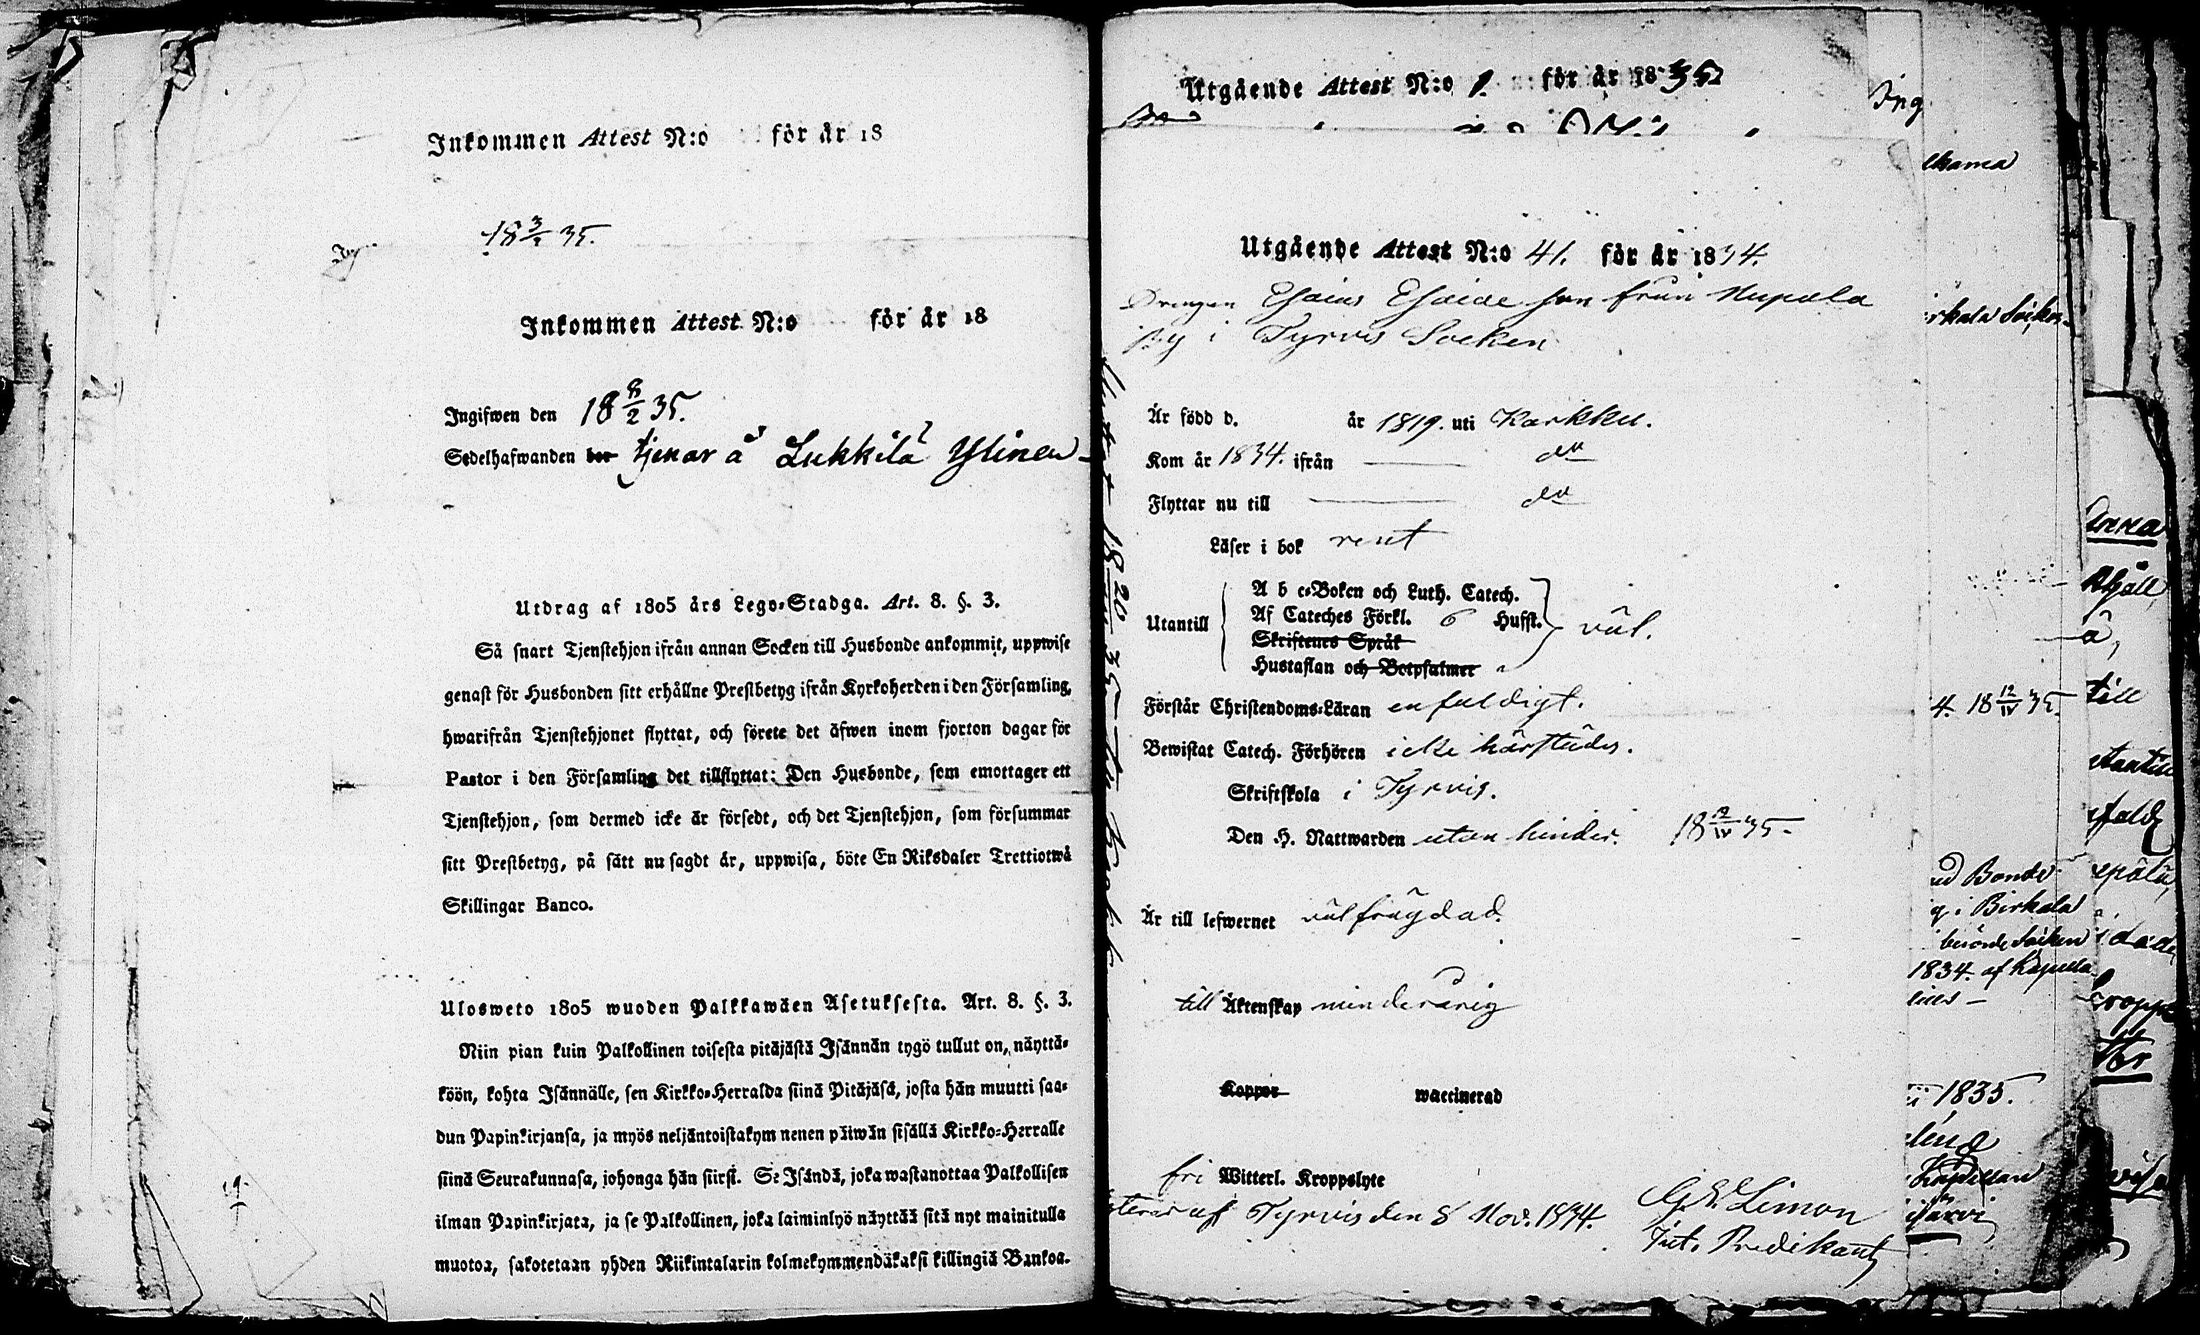 Inkommen Attest N:o för år 18
18 3/2 35.
Inkommen Attest N:o för år 18
Ingifwen den 18 8/2 35.
Sedelhafwanden bor tjenar å Lukkila Ylinen
Utdrag af 1805 års Lego-Stadga. Art. 8. §. 3.
Så snart Tjenstehjon ifrån annan Socken till Husbonde ankommit, uppwise
genast för Husbonden sitt erhållne Prestbetyg ifrån Kyrkoherden i den Församling,
hwarifrån Tjenstehjonet flyttat, och förete det äfwen inom fjorton dagar för
Pastor i den Församling det tillflyttat: Den Husbonde, som emottager ett
Tjenstehjon, som dermed icke är försedt, och det Tjenstehjon, som försummar
sitt Prestbetyg, på sätt nu sagdt är, uppwisa, böte En Riksdaler Trettiotwå
Skillingar Banco.
Ulosweto 1805 wuoden Palkkawäen Asetuksesta. Art. 8. §. 3.
Niin pian kuin Palkollinen toisesta pitäjästä Isännän tygö tullut on, näyttä-
köön, kohta Isännälle, sen Kirkko-Herralda siinä Pitäjäsä, josta hän muutti saa-
dun Papinkirjansa, ja myös neljäntoistakym nenen päiwän sisällä Kirkko-Herralle
siinä Seurakunnasa, johonga hän siirsi. Se Isändä, joka wastanottaa Palkollisen
ilman Papinkirjata, ja se Palkollinen, joka laiminlyö näyttää sitä nyt mainitulla
muotoa, sakotetaan yhden Riikintalarin kolmekymmendäkaksi killingiä Bankoa.
Utgående Attest N:o 1. för år 1835
Utgående Attest N:o 41. för år 1834.
Drengen Esaias Esaiae son från Nupala
By i Tyrvis Socken
Är född d. år 1819. uti Karkku.
Kom år 1834. ifrån do
Flyttar nu till do
Läser i bok rent
A b c-Boken och Luth. Catech.
Utantill Af Cateches Förkl. 6 Hufst. väl.
Skriftenes Språk
Hustaflan och Botpsalmer
Förstår Christendoms-Läran enfaldigt.
Bewistat Catech. Förhören icke härstädes.
Skriftskola i Tyrvis.
Den H. Nattwarden utan hinder. 18 12/IV 35.
Är till lefwernet välfrägdad.
till Äktenskap minderårig
Koppor waccinerad
fri Witterl. Kroppslyte
Tyrvis den 8 Nov. 1834.
G. E. Limon
Predikant
Ing
4. 18 12/IV 35.
Bonde
i Birkala
Socken
1834. af
1835.
Anna
till